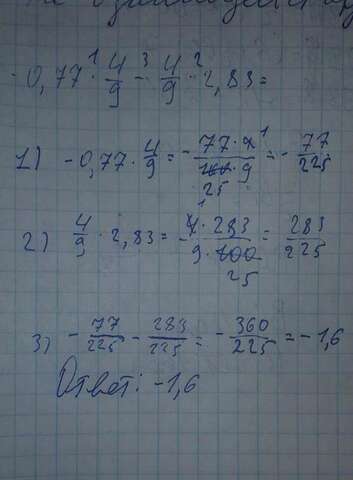 -0,77 ·¹ 4/9 -³ 4/9 ·² 2,83 =
1) -0,77 · 4/9 = - 77·4/100·9 = - 77/225
1
25
2) 4/9 · 2,83 = - 4·283/9·100 = 283/225
1
25
3) - 77/225 - 283/225 = - 360/225 = -1,6
Ответ: -1,6